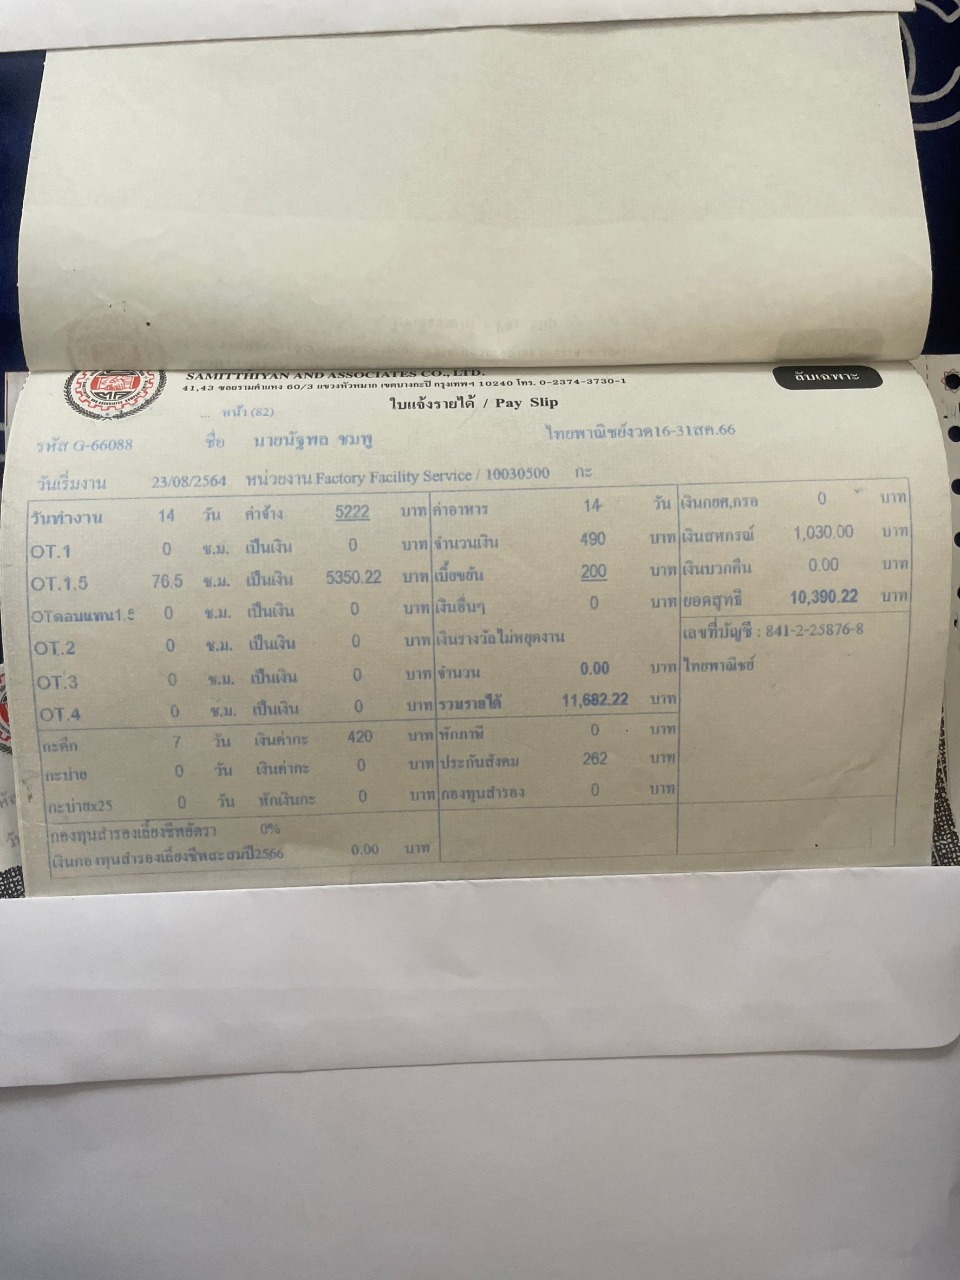 SAMITTHIYAN AND ASSOCIATES CO., LTD.
41,43 ซอยรามคำแหง 60/3 แขวงหัวหมาก เขตบางกะปิ กรุงเทพฯ 10240 โทร. 0-2374-3730-1
ลับเฉพาะ
ใบแจ้งรายได้ / Pay Slip
... หน้า (82)
รหัส G-66088 ชื่อ นายนัฐพล ชมพู ไทยพาณิชย์งวด16-31สค.66
วันเริ่มงาน 23/08/2564 หน่วยงาน Factory Facility Service / 10030500 กะ
วันทำงาน 14 วัน ค่าจ้าง 5222 บาท ค่าอาหาร 14 วัน เงินกยศ,กรอ 0 บาท
OT.1 0 ช.ม. เป็นเงิน 0 บาท จำนวนเงิน 490 บาท เงินสหกรณ์ 1,030.00 บาท
OT.1.5 76.5 ช.ม. เป็นเงิน 5350.22 บาท เบี้ยขยัน 200 บาท เงินบวกคืน 0.00 บาท
OTตอบแทน1.5 0 ช.ม. เป็นเงิน 0 บาท เงินอื่นๆ 0 บาท ยอดสุทธิ 10,390.22 บาท
OT.2 0 ช.ม. เป็นเงิน 0 บาท เงินรางวัลไม่หยุดงาน เลขที่บัญชี : 841-2-25876-8
OT.3 0 ช.ม. เป็นเงิน 0 บาท จำนวน 0.00 บาท ไทยพาณิชย์
OT.4 0 ช.ม. เป็นเงิน 0 บาท รวมรายได้ 11,682.22 บาท
กะดึก 7 วัน เงินค่ากะ 420 บาท หักภาษี 0 บาท
กะบ่าย 0 วัน เงินค่ากะ 0 บาท ประกันสังคม 262 บาท
กะบ่ายx25 0 วัน หักเงินกะ 0 บาท กองทุนสำรอง 0 บาท
กองทุนสำรองเลี้ยงชีพอัตรา 0%
เงินกองทุนสำรองเลี้ยงชีพสะสมปี2566 0.00 บาท